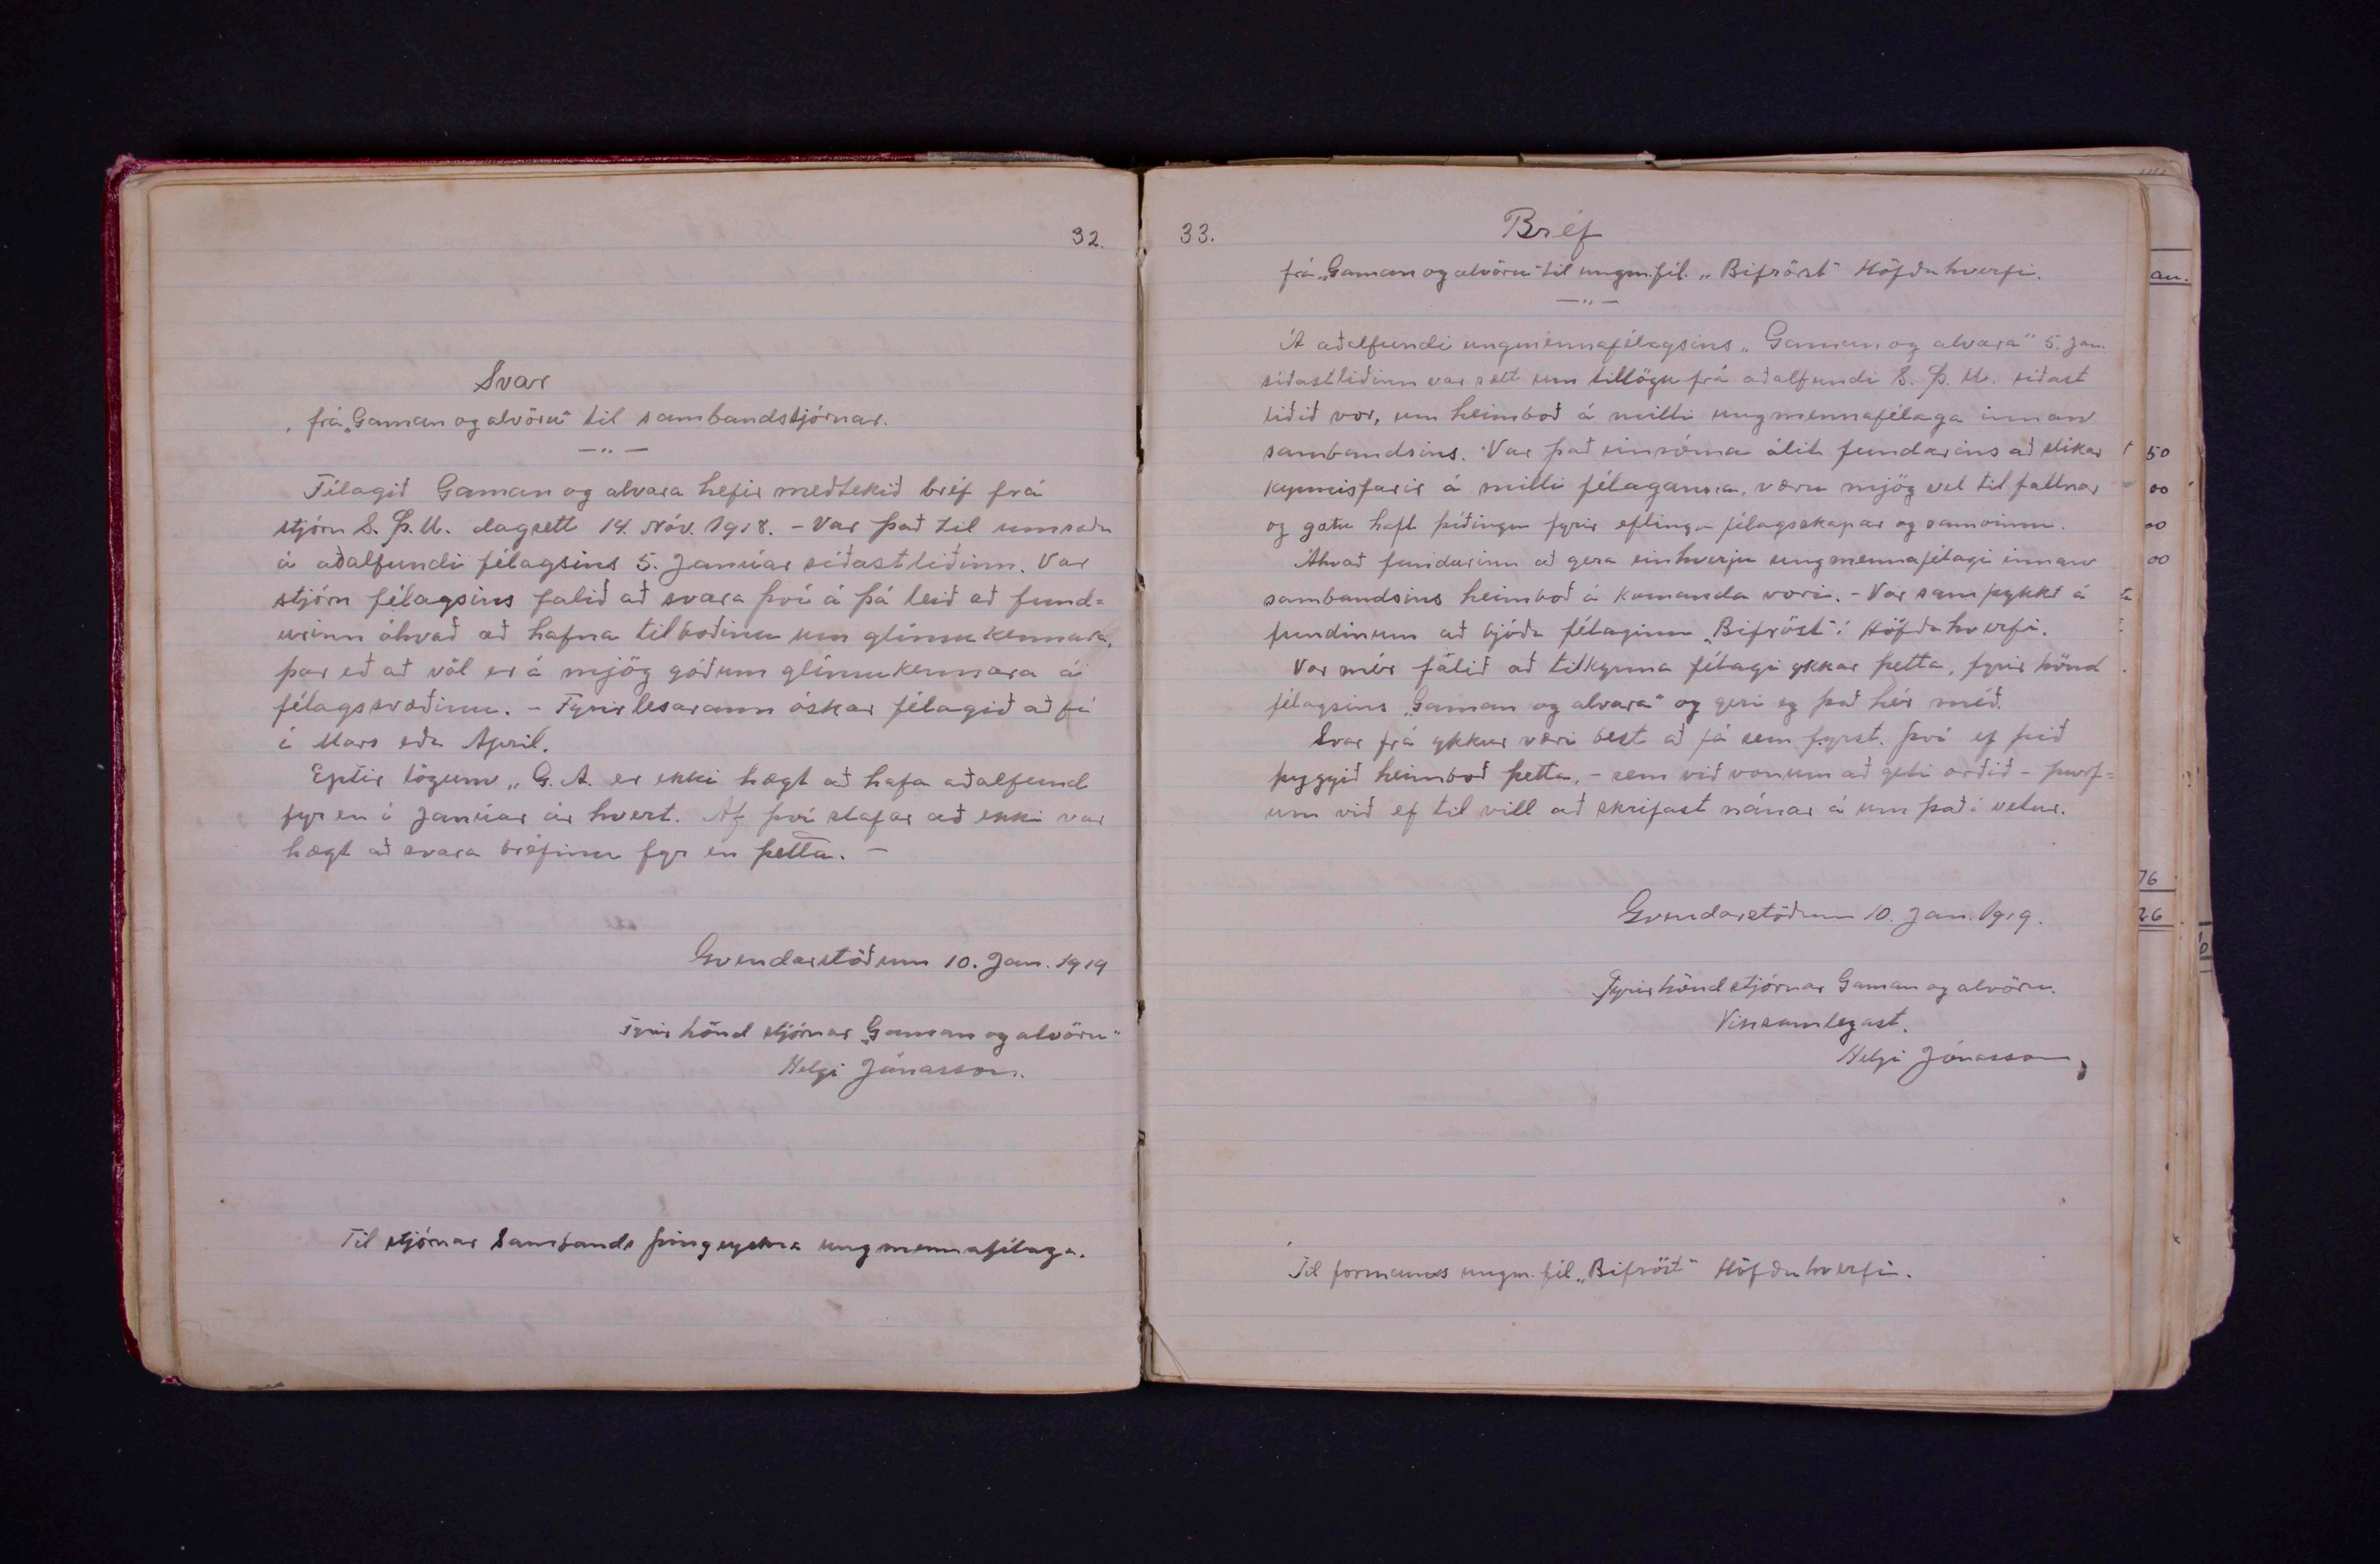 32.
Svar
frá „Gaman og alvöru" til sambandstjórnar.
— „ —
Félagið Gaman og alvara hefir meðtekið bréf frá
stjórn S. Þ. U. dagsett 14. Nóv. 1918. - Var það til umræðu
á aðalfundi félagsins 5. Janúar síðastliðinn. Var
stjórn félagsins falið að svara því á þá leið að fund=
urinn ákvað að hafna tilboðinu um glímukennara,
þar eð að völ er á mjög góðum glímukennara á
félagssvæðinu. - Fyrirlesarann óskar félagið að fá
í Mars eða Apríl.
Eptir lögum „G. A. er ekki hægt að hafa aðalfund
fyr en í Janúar ár hvert. Af því stafar að ekki var
hægt að svara bréfinu fyr en þetta. -
Gvendarstöðum 10. Jan. 1919
Fyrir hönd stjórnar „Gaman og alvöru"
Helgi Jónasson.
Til stjórnar Sambands þingeyskra ungmennafélaga.
33.
Bréf
frá „Gaman og alvöru" til ungm.fél. „Bifröst" Höfðahverfi.
— „ —
Á aðalfundi ungmennafélagsins „Gaman og alvara" 5. Jan.
síðastliðinn var rætt um tillögu frá aðalfundi S. Þ. U. síðast
liðið vor, um heimboð á milli ungmennafélaga innan
sambandsins. Var það einróma álit fundarins að slíkar
kynnisfarir á milli félaganna, væru mjög vel til fallnar
og gætu haft þíðingu fyrir eflingu félagsskapar og samvinnu.
Ákvað fundurinn að gera einhverju ungmennafélagi innan
sambandsins heimboð á komanda vori. - Var samþykkt á
fundinum að bjóða félaginu „Bifröst" í Höfðahverfi.
Var mér falið að tilkynna félagi ykkar þetta, fyrir hönd
félagsins „Gaman og alvara" og geri eg það hér með.
Svar frá ykkur væri best að fá sem fyrst. Því ef þið
þyggið heimboð þetta, - sem við vonum að geti orðið - þurf=
um við ef til vill að skrifast nánar á um það í vetur.
Gvendarstöðum 10. Jan. 1919.
Fyrir hönd stjórnar Gaman og alvöru.
Vinsamlegast.
Helgi Jónasson
Til formanns ungm. fél „Bifröst" Höfðahverfi.
au.
50
00
00
00
76
26